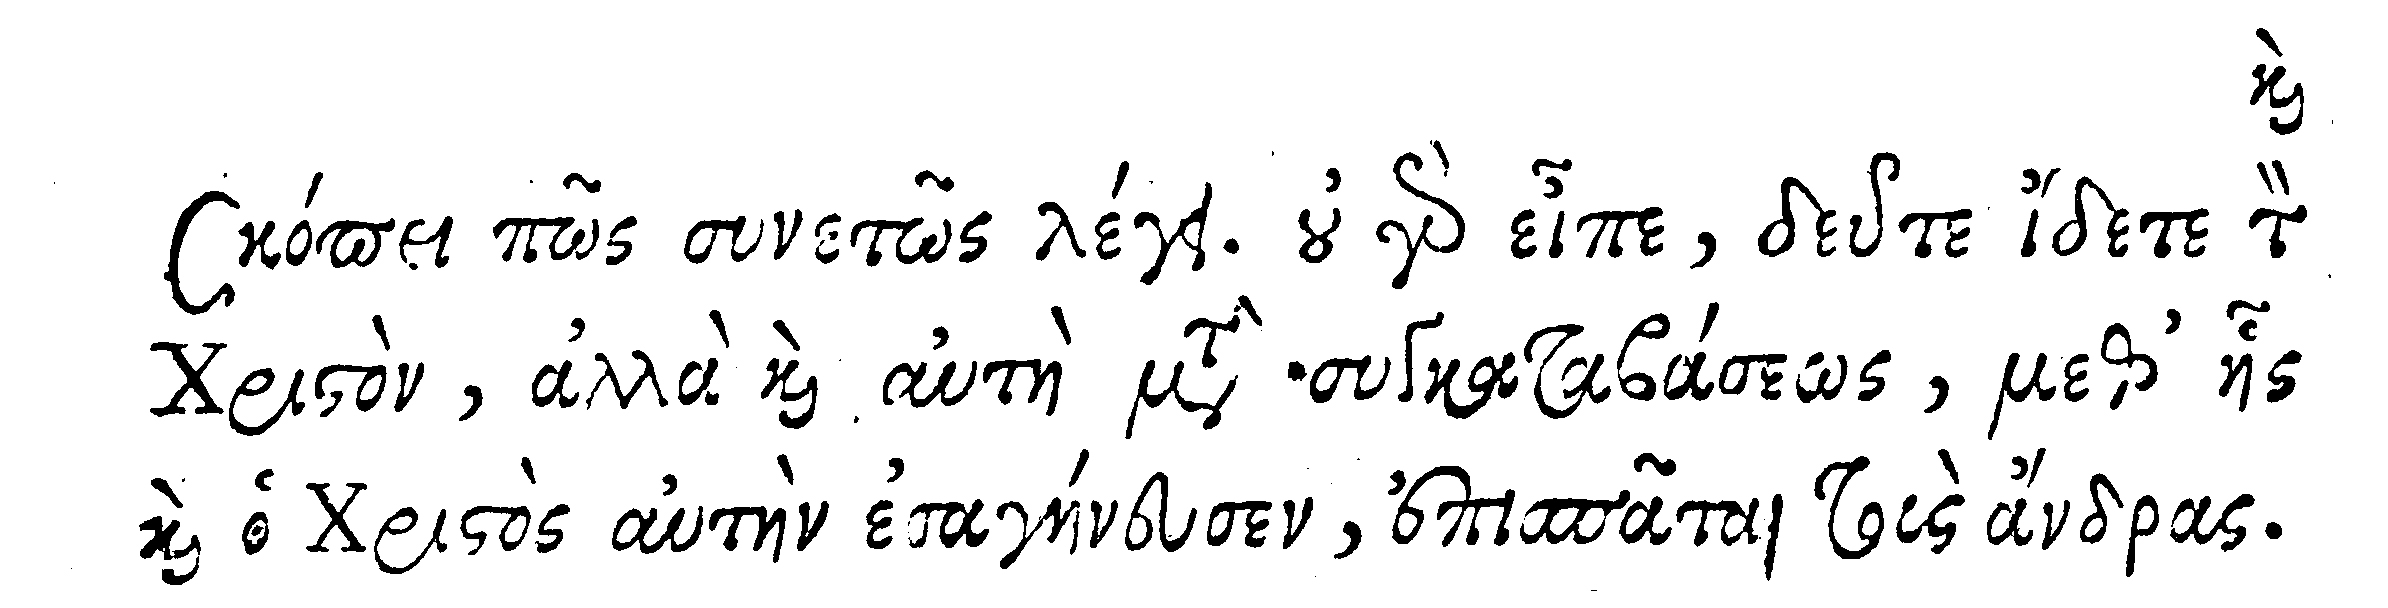 καὶ
Σκόπει πῶς συνετῶς λέγει. οὐ γὰρ εἶπε, δεῦτε ἴδετε τὸν
Χριστὸν, ἀλλὰ καὶ αὐτὴ μετὰ συγκαταβάσεως, μεθ’ ἧς
καὶ ὁ Χριστὸς αὐτὴν ἐσαγήνευσεν, ἐπισπᾶται τοὺς ἄνδρας.